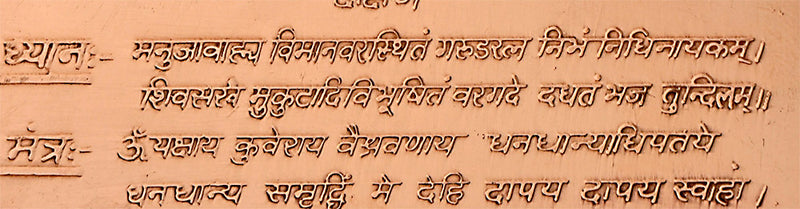 ध्यानः- मनुजावाह्य विमानवरस्थितं गरुडरत्न निभं निधिनायकम् ।
शिवसखं मुकुटादिविभूषितं वरगदे दधतं भज तुन्दिलम् ॥
मंत्रः- ॐ यक्षाय कुवेराय वैश्रवणाय धनधान्याधिपतये
धनधान्य समृद्धिं मे देहि दापय दापय स्वाहा ।